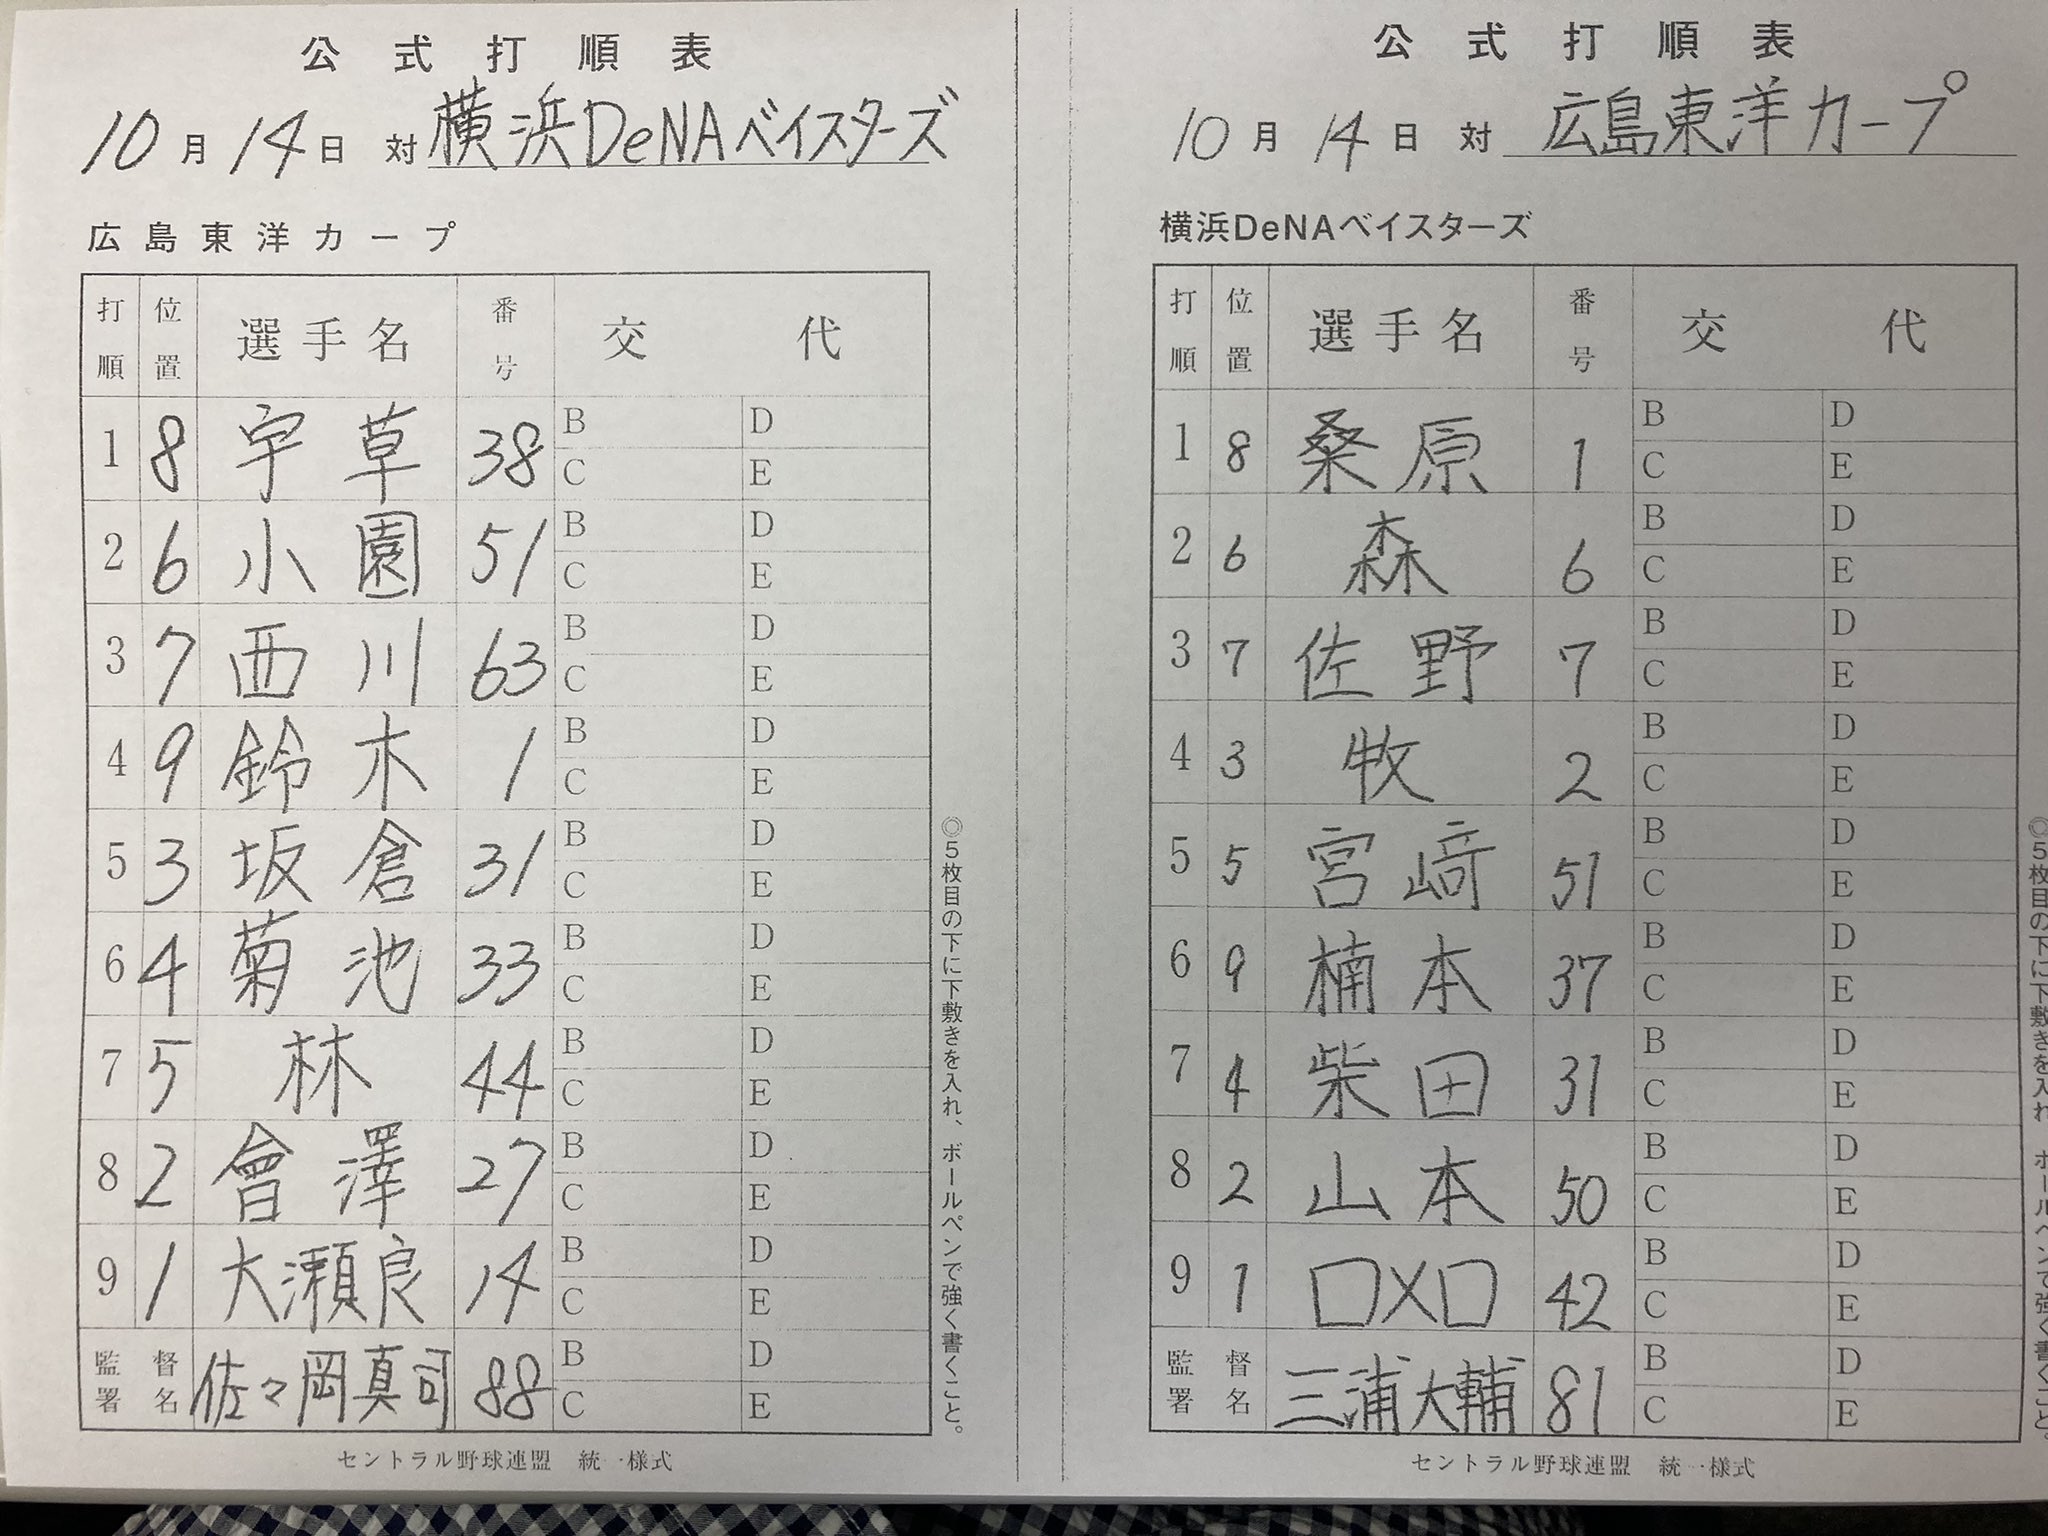 公式打順表
10月14日 対 横浜DeNAベイスターズ
広島東洋カープ
打順 位置 選手名 番号 交代
1 8 宇草 38 B D C E
2 6 小園 51 B D C E
3 7 西川 63 B D C E
4 9 鈴木 1 B D C E
5 3 坂倉 31 B D C E
6 4 菊池 33 B D C E
7 5 林 44 B D C E
8 2 會澤 27 B D C E
9 1 大瀬良 14 B D C E
監督署名 佐々岡真司 88 B D C E
◎5枚目の下に下敷きを入れ、ボールペンで強く書くこと。
セントラル野球連盟 統一様式
公式打順表
10月14日 対 広島東洋カープ
横浜DeNAベイスターズ
打順 位置 選手名 番号 交代
1 8 桑原 1 B D C E
2 6 森 6 B D C E
3 7 佐野 7 B D C E
4 3 牧 2 B D C E
5 5 宮﨑 51 B D C E
6 9 楠本 37 B D C E
7 4 柴田 31 B D C E
8 2 山本 50 B D C E
9 1 ロメロ 42 B D C E
監督署名 三浦大輔 81 B D C E
◎5枚目の下に下敷きを入れ ボールペンで強く書くこと。
セントラル野球連盟 統一様式